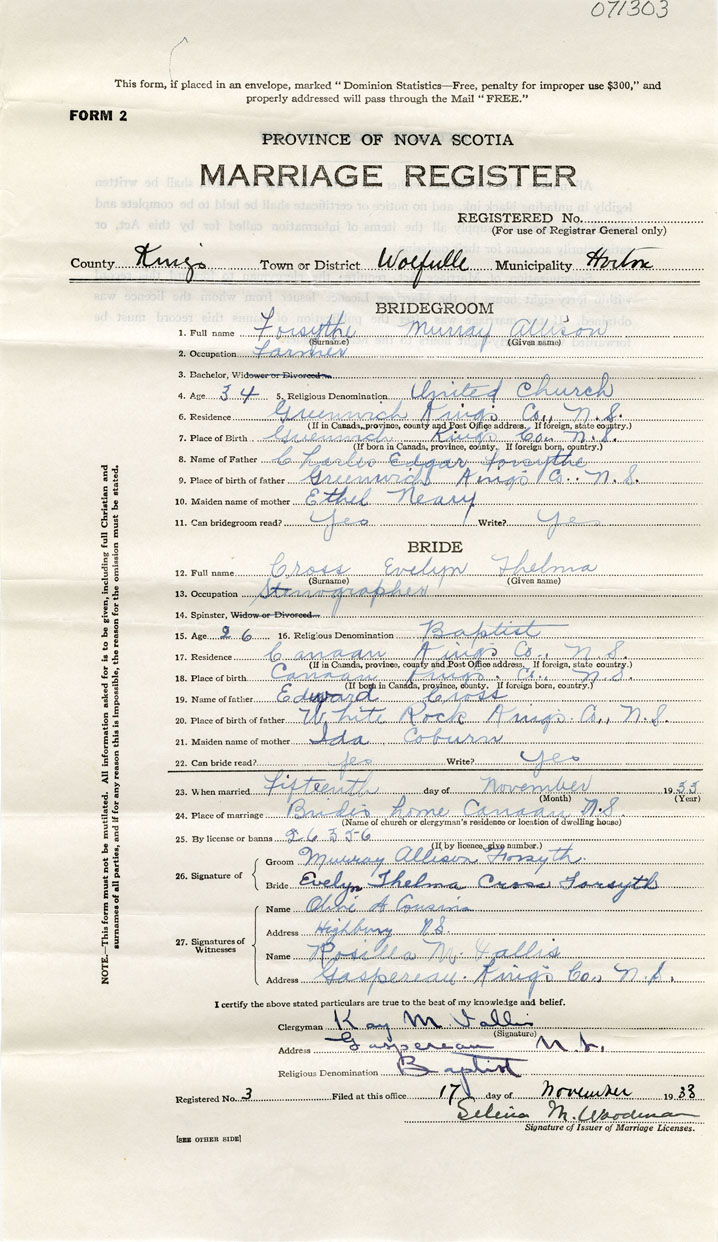 071303
This form, if placed in an envelope, marked “Dominion Statistics—Free, penalty for improper use $300,” and
properly addressed will pass through the Mail “FREE.”
FORM 2
PROVINCE OF NOVA SCOTIA
MARRIAGE REGISTER
REGISTERED No.
(For use of Registrar General only)
County Kings Town or District Wolfville Municipality Horton
BRIDEGROOM
1. Full name Forsythe Murray Allison
(Surname) (Given name)
2. Occupation Farmer
3. Bachelor, Widower or Divorced
4. Age 34 5. Religious Denomination United Church
6. Residence Greenwich Kings Co., N.S.
(If in Canada, province, county and Post Office address. If foreign, state country.)
7. Place of Birth Greenwich Kings Co. N.S.
(If born in Canada, province, county. If foreign born, country.)
8. Name of Father Charles Edgar Forsythe
9. Place of birth of father Greenwich Kings Co., N.S.
10. Maiden name of mother Ethel Neary
11. Can bridegroom read? Yes Write? Yes
BRIDE
12. Full name Cross Evelyn Thelma
(Surname) (Given name)
13. Occupation Stenographer
14. Spinster, Widow or Divorced
15. Age 26 16. Religious Denomination Baptist
17. Residence Canaan Kings Co., N.S.
(If in Canada, province, county and Post Office address. If foreign, state country.)
18. Place of birth Canaan Kings Co., N.S.
(If born in Canada, province, county. If foreign born, country.)
19. Name of father Edward Cross
20. Place of birth of father White Rock Kings Co., N.S.
21. Maiden name of mother Ida Coburn
22. Can bride read? yes Write? yes
23. When married Fifteenth day of November 1933
(Month) (Year)
24. Place of marriage Bride's home Canaan N.S.
(Name of church or clergyman's residence or location of dwelling house)
25. By license or banns 26356
(If by licence, give number.)
26. Signature of
Groom Murray Allison Forsyth
Bride Evelyn Thelma Cross Forsyth
27. Signatures of Witnesses
Name Olive A Cousins
Address Highbury N.S.
Name Rosilla M. Vallis
Address Gaspereau Kings Co. N.S.
I certify the above stated particulars are true to the best of my knowledge and belief.
Clergyman Kay M Vallis
(Signature)
Address Gaspereau N.S.
Religious Denomination Baptist
Registered No. 3 Filed at this office 17 day of November 1933
Selina M. Woodman
Signature of Issuer of Marriage Licenses.
[SEE OTHER SIDE]
NOTE.—This form must not be mutilated. All information asked for is to be given, including full Christian and
surnames of all parties, and if for any reason this is impossible, the reason for the omission must be stated.